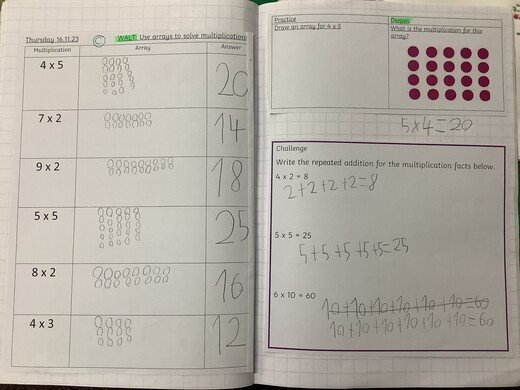 Thursday 16.11.23 C WALT: Use arrays to solve multiplications
Multiplication Array Answer
4 x 5 20
7 x 2 14
9 x 2 18
5 x 5 25
8 x 2 16
4 x 3 12
Practice
Draw an array for 4 x 5
Deepen
What is the multiplication for this
array?
5x4=20
Challenge
Write the repeated addition for the multiplication facts below.
4 x 2 = 8
2+2+2+2=8
5 x 5 = 25
5+5+5+5+5=25
6 x 10 = 60
10+10+10+10+10+10=60
10+10+10+10+10+10=60